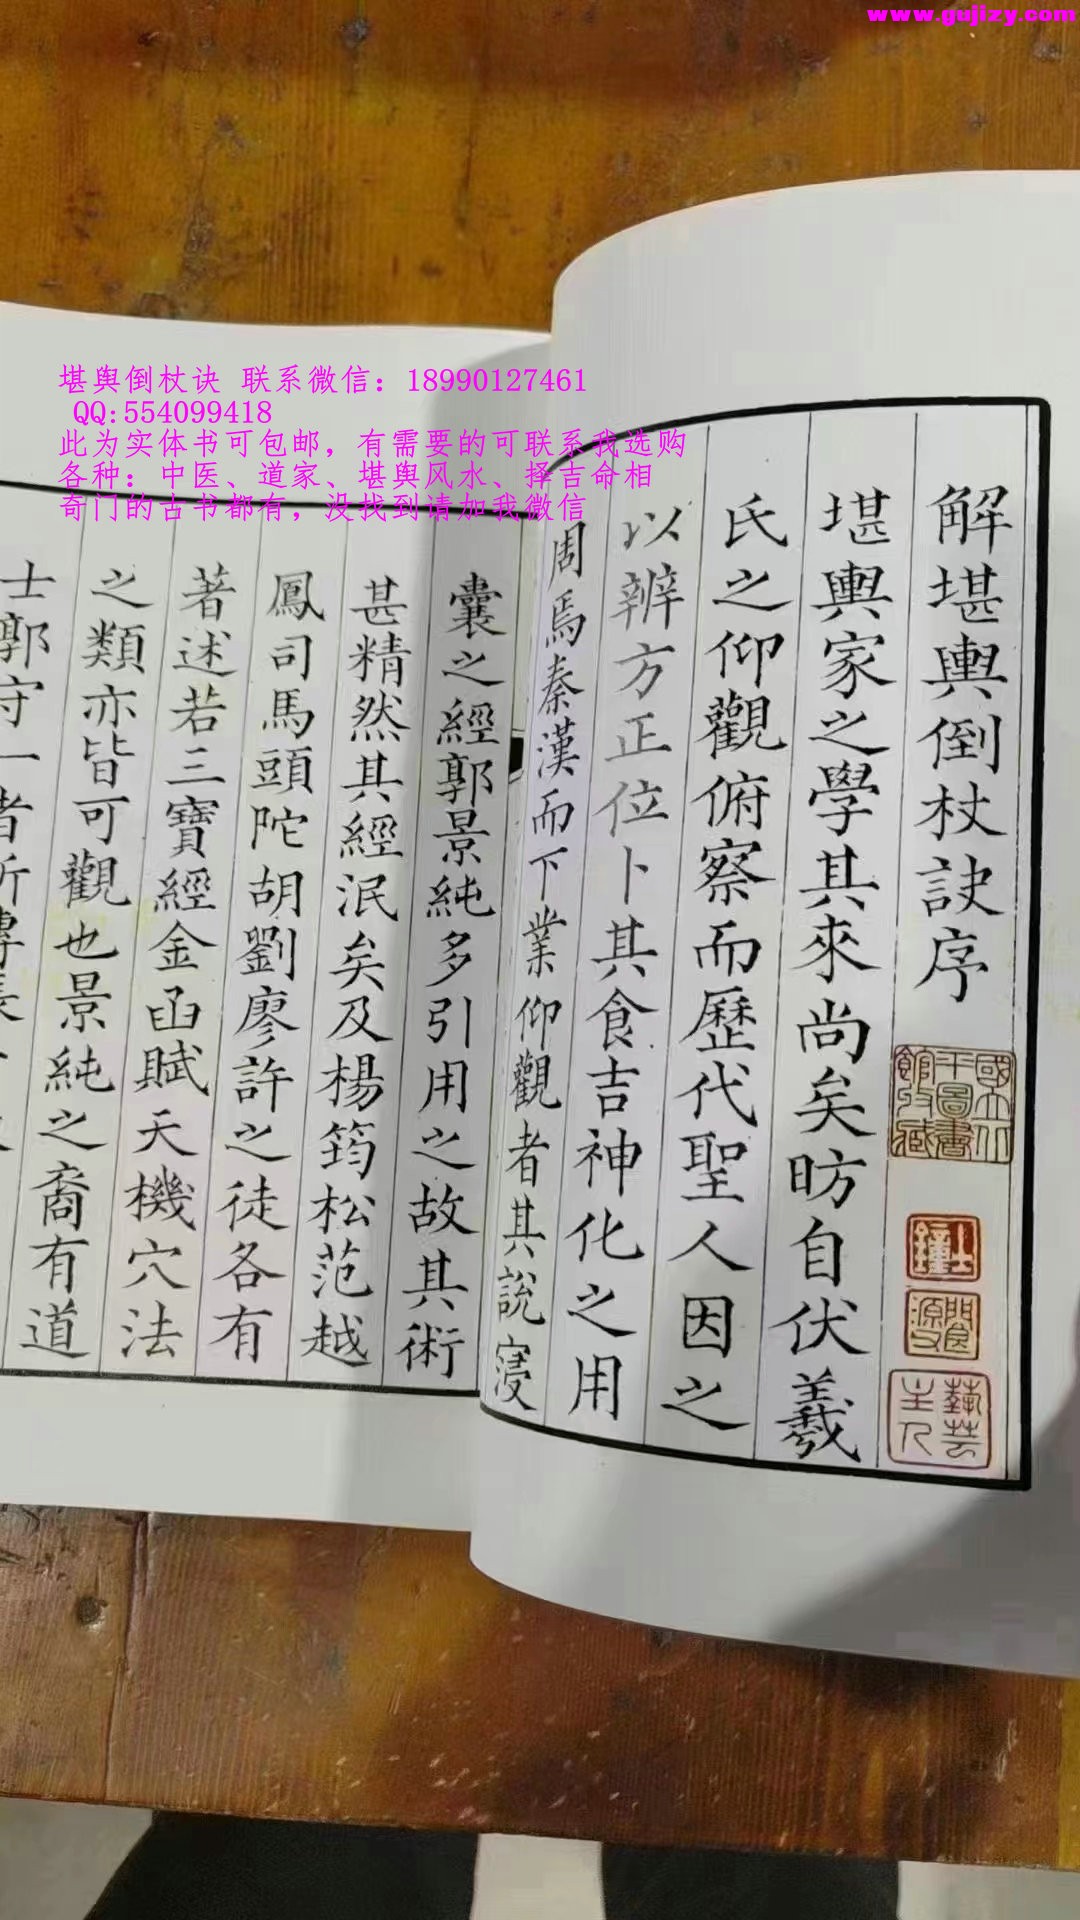 www.gujizy.com
堪舆倒杖诀 联系微信：18990127461
QQ:554099418
此为实体书可包邮，有需要的可联系我选购
各种：中医、道家、堪舆风水、择吉命相
奇门的古书都有，没找到请加我微信
解堪輿倒杖訣序
堪輿家之學其來尚矣昉自伏羲
氏之仰觀俯察而歷代聖人因之
以辨方正位卜其食吉神化之用
周焉秦漢而下業仰觀者其說寖
囊之經郭景純多引用之故其術
甚精然其經泯矣及楊筠松范越
鳳司馬頭陀胡劉廖許之徒各有
著述若三寶經金函賦天機穴法
之類亦皆可觀也景純之裔有道
士郭守一者所傳
國立北平圖書館收藏
藝芸主人